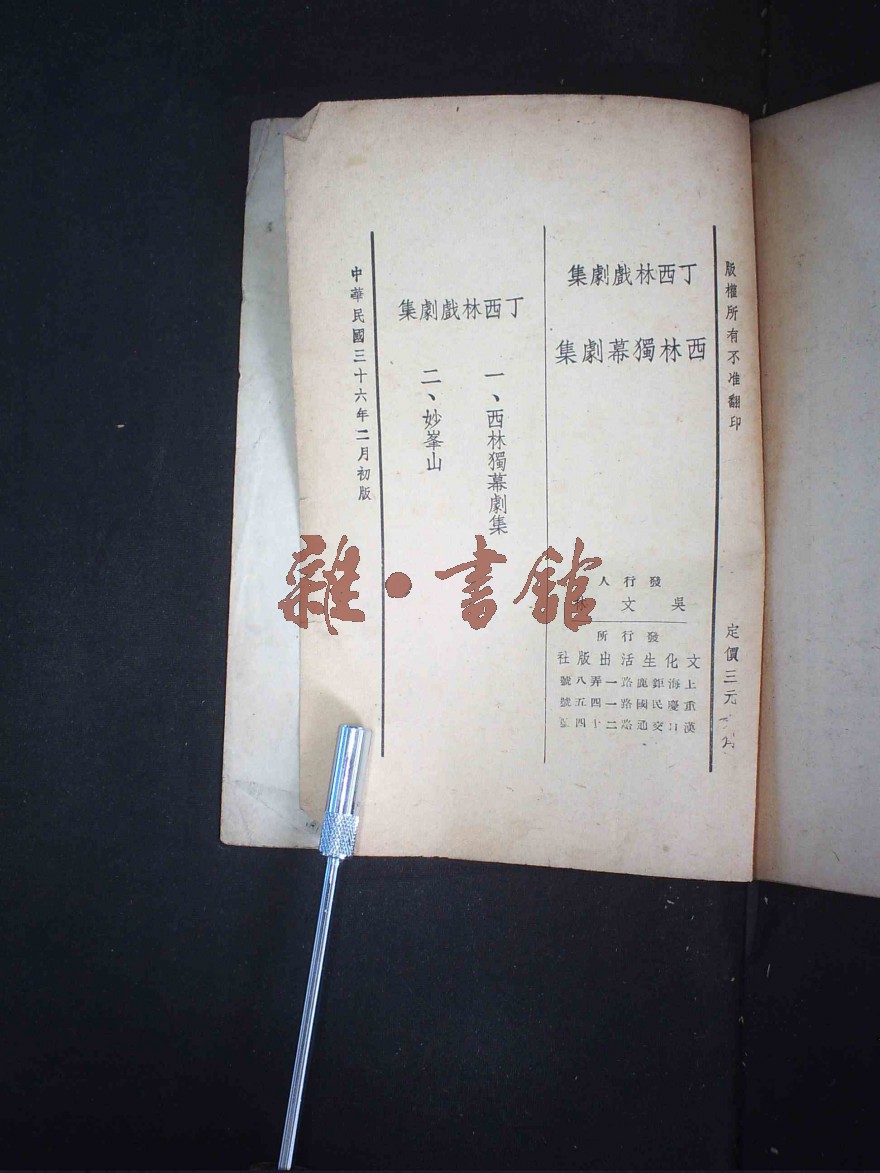 版權所有不准翻印
定價三元
丁西林戲劇集
西林獨幕劇集
發行人
吳文林
發行所
文化生活出版社
上海鉅鹿路一弄八號
重慶民國路一四五號
漢口交通路二十四號
丁西林戲劇集
一、西林獨幕劇集
二、妙峯山
中華民國三十六年二月初版
雜·書館